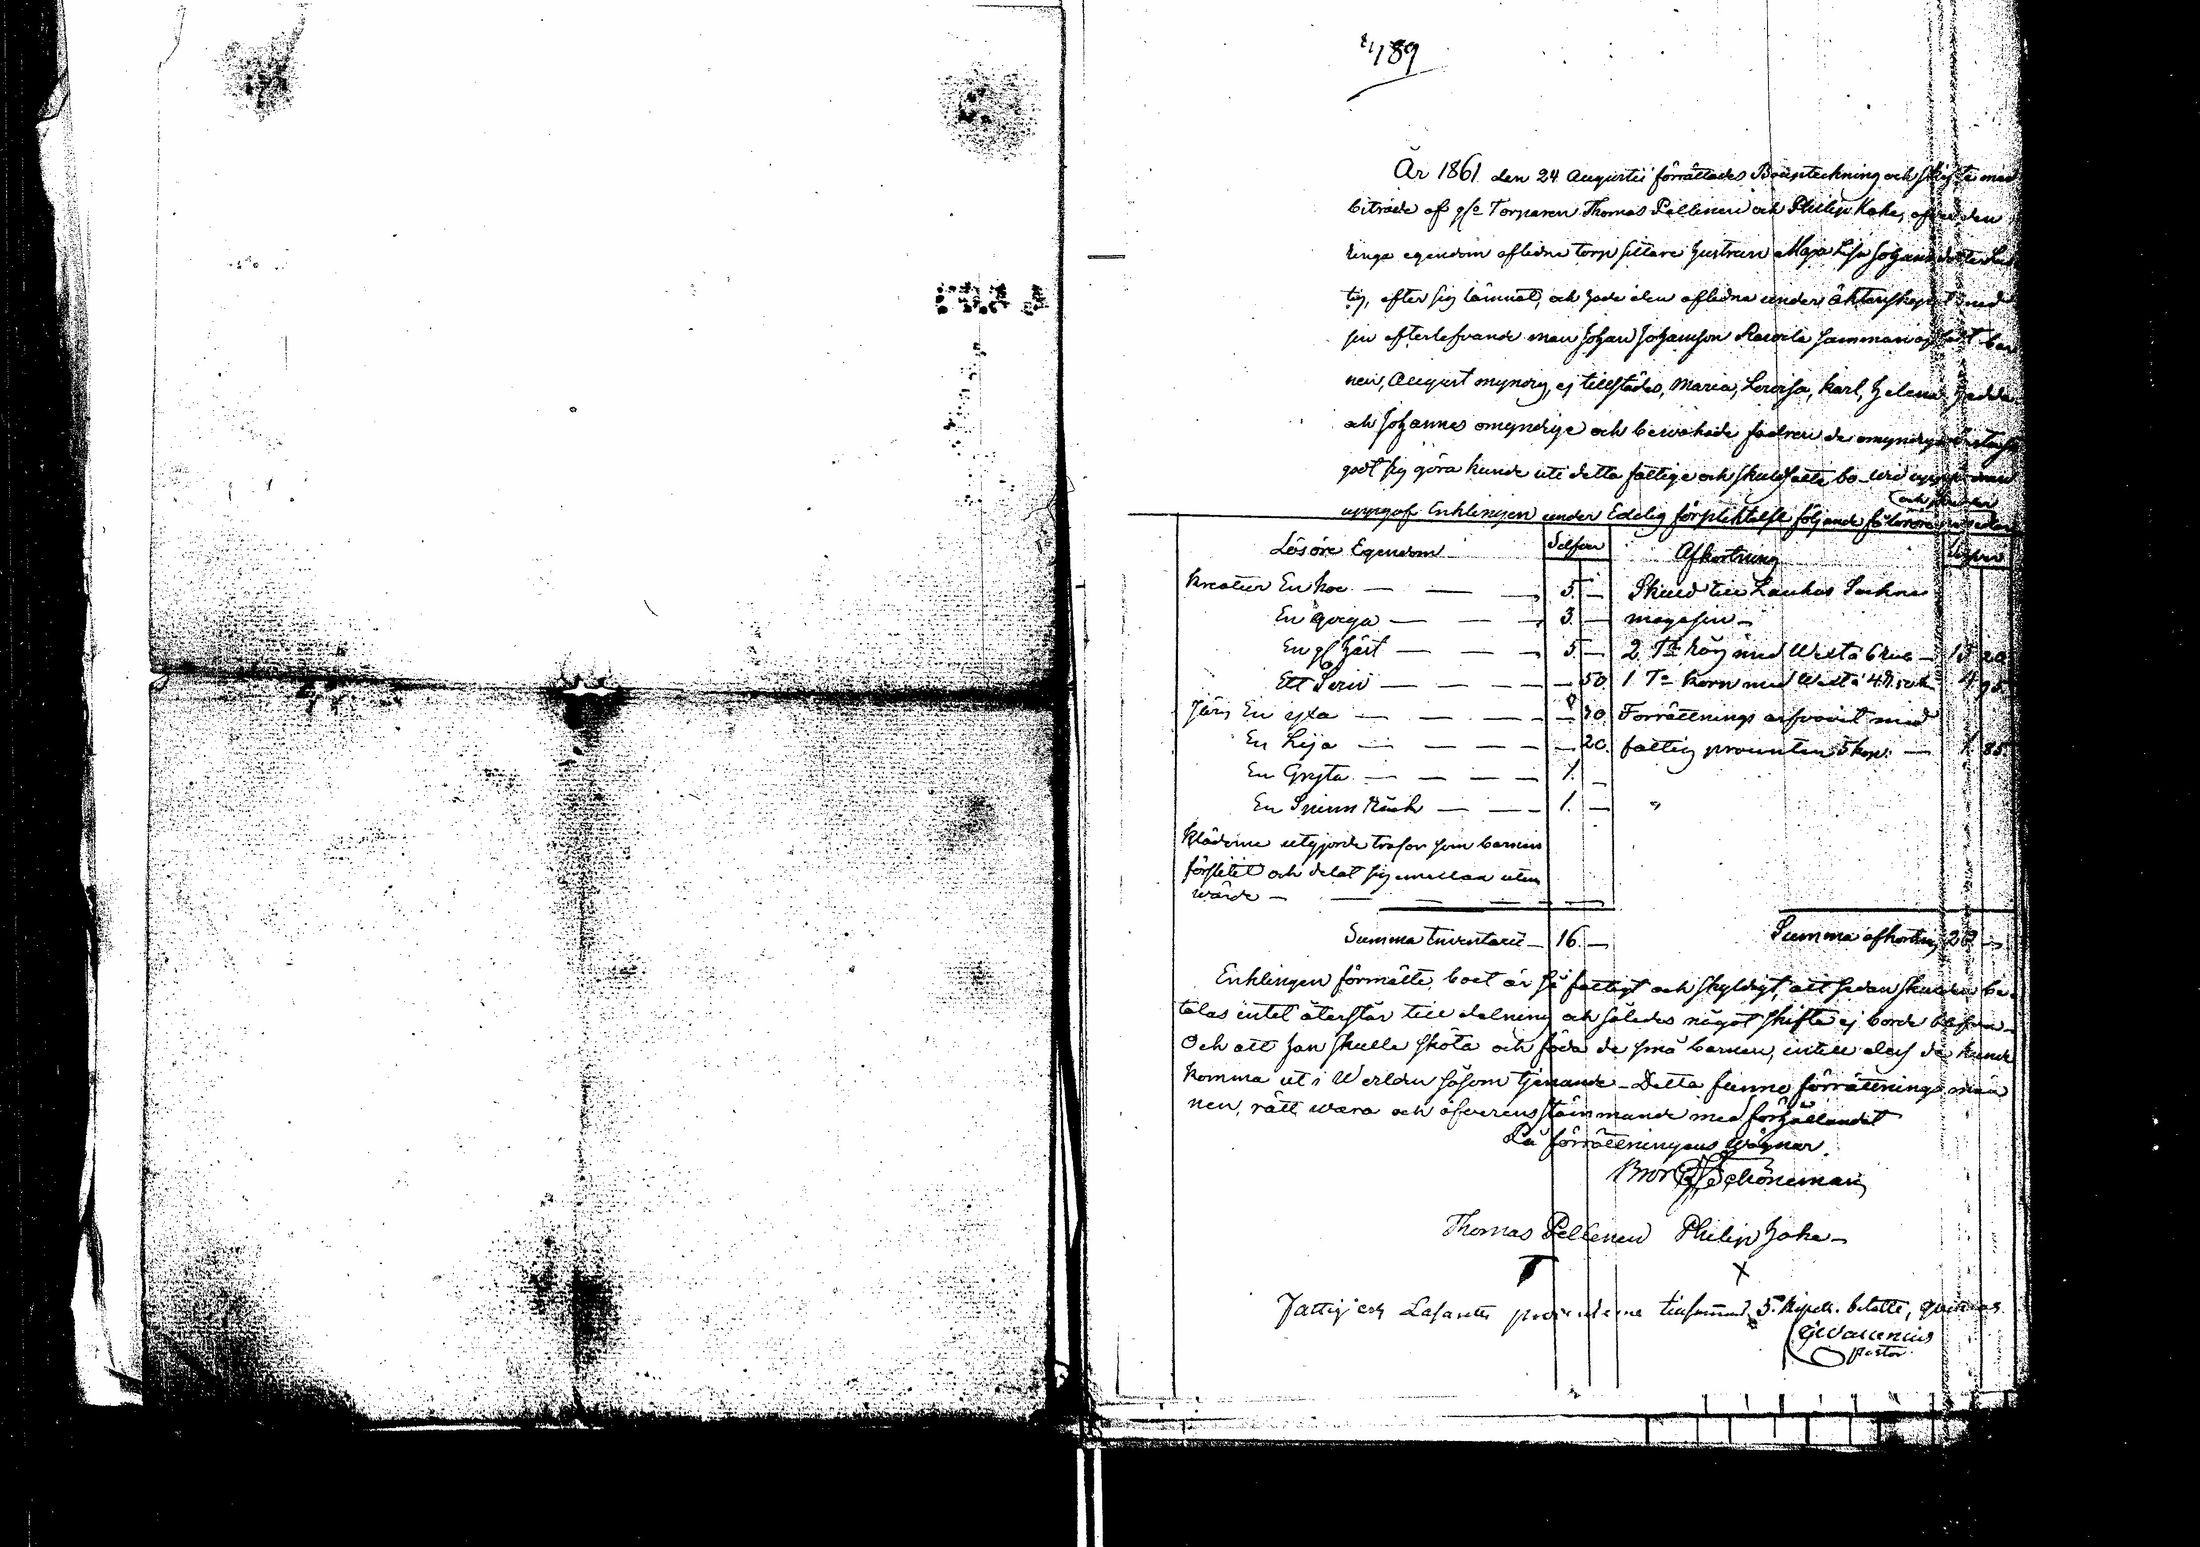 189
År 1861 den 24 Augusti förrättades Bouptekning och skifte med
biträde af Torparen Thomas Pellinen och Philip Hake, af den
ringa egendom aflidna torp sittare hustrun Maja Lisa Johans dotter
tig, efter sig lämnat, och hade den aflidna under äktenskapet med
sin efterlefvande man Johan Johansson sammanaflat bar
nen, August myndig, ej tillstädes, Maria, Lovisa, Karl, Helena, Hedda
och Johannes omyndige och bevakade fadren de omyndigas
godt sig göra kunde uti detta fattiga och skuldsatte bo
uppgaf Enklingen under Edelig förpliktelse följande
Lösöre Egendom Silfver Afkortning Silfver
Kreatur En ko — — — 5. — Skuld till Laukas Sockne
En qviga — — — 3. — magasin —
En häst — — — 5. — 2 Tr Råg med Westa 6 kr — 15 20
Ett Svin — — — 50. 1 Tr Korn med Westa 4 95
Järn En yxa — — — 30. Förrättnings arfvoit med
En Lija — — — 20. fattig procenten 5 kop. — 1 85
En Gryta — — — 1. —
En Spinn Råck — — — 1. — "
Kläderne utgjorde trasor som barnen
förslitit och delat sig emellan utan
wärde — — — —
Summa Inventarii — 16. — Summa afkortng 22 —
Enklingen förmälte, boet är så fattigt och skyldigt, att sedan skulden be
talas intet återstår till delning och således något skifte ej borde
Och att han skulle sköta och föda de små barnen, intill dess de kunde
komma ut i Werlden såsom tjenande — Detta funno förrättnings män
nen, rätt wara och öfverensstämmande med förhållandet
På förrättningens Wägnar.
Bror Schöneman
Thomas Pellenen Philip Hake —
X
Fattig och Lasaretts procenterne tillsammans 5. kopek. betalte, qvitteras
Wallenius
pastor